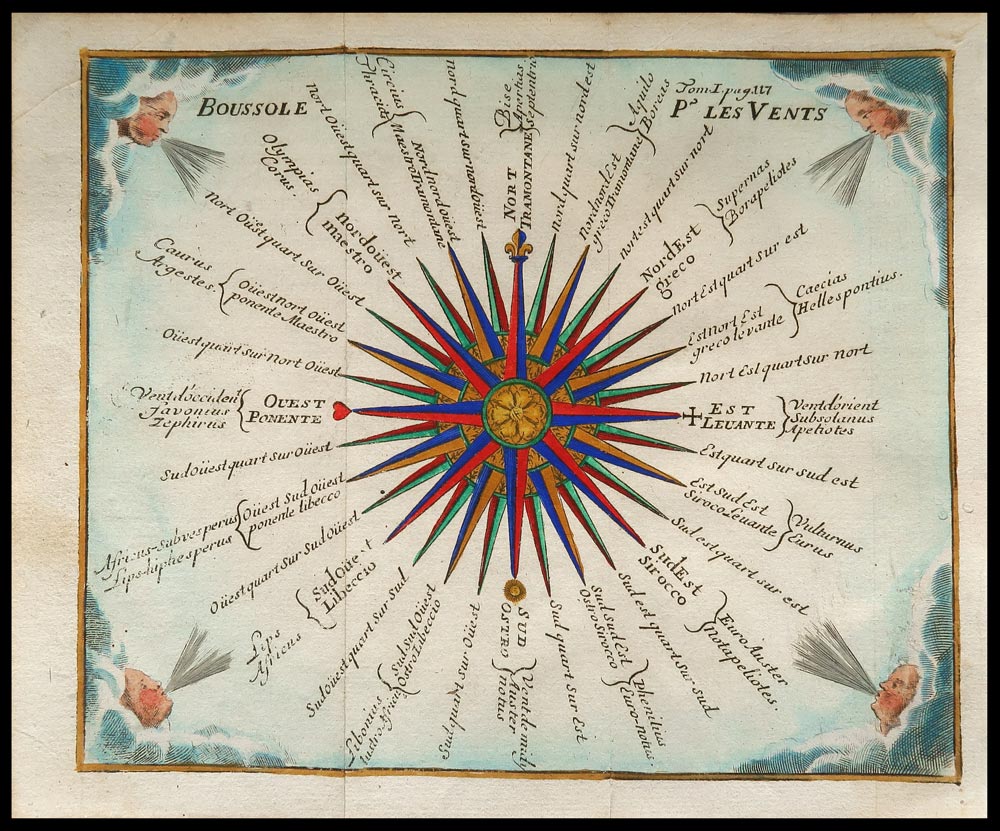 BOUSSOLE
Tom I pag. 117
Pr LES VENTS
NORT
TRAMONTANE
Bise
Aperhas
Septentrio
nord quart sur nordest
Nordnord Est
greco Tramontane
Aquilo
Boreas
nortest quart sur nort
NordEst
greco
Supernas
Borapeliotes
nort Est quart sur est
Est nort Est
greco levante
Caecias
Hellespontius.
Nort Est quart sur nort
EST
LEUANTE
Vent d'orient
Subsolanus
Apeliotes
Est quart sur sud est
Est Sud Est
Siroco Leuante
Vulturnus
Eurus
Sud est quart sur est
SudEst
Sirocco
Euro Auster
notapeliotes.
Sud est quart sur sud
Sud Sud Est
Ostro Sirocco
phenellius
Euro-notus
Sud quart sur Est
SUD
OSTRO
Vent de midy
Auster
notus
Sud quart sur Oüest
Sud Sud Oüest
Ostro Libeccio
Libonius
Sudoüest quart sur sud
Sud Oüe t
Libeccio
Lips
Africus
Oüest quart sur Sud Oüest
Oüest Sud Oüest
ponente libecco
Africus-Subvesperus
Lips-hiphesperus
Sud oüest quart sur Oüest
OUEST
PONENTE
Vent d'occident
Favonius
Zephirus
Oüest quart sur Nort Oüest
Oüest nort Oüest
ponente Maestro
Caurus
Argestes.
nort Oüest quart sur Oüest
nordoüest
maestro
Olympias
Corus
nort Oüest quart sur nort
Nord nord oüest
Maestro Tramontane
Circius
Thracias
nord quart sur nordoüest